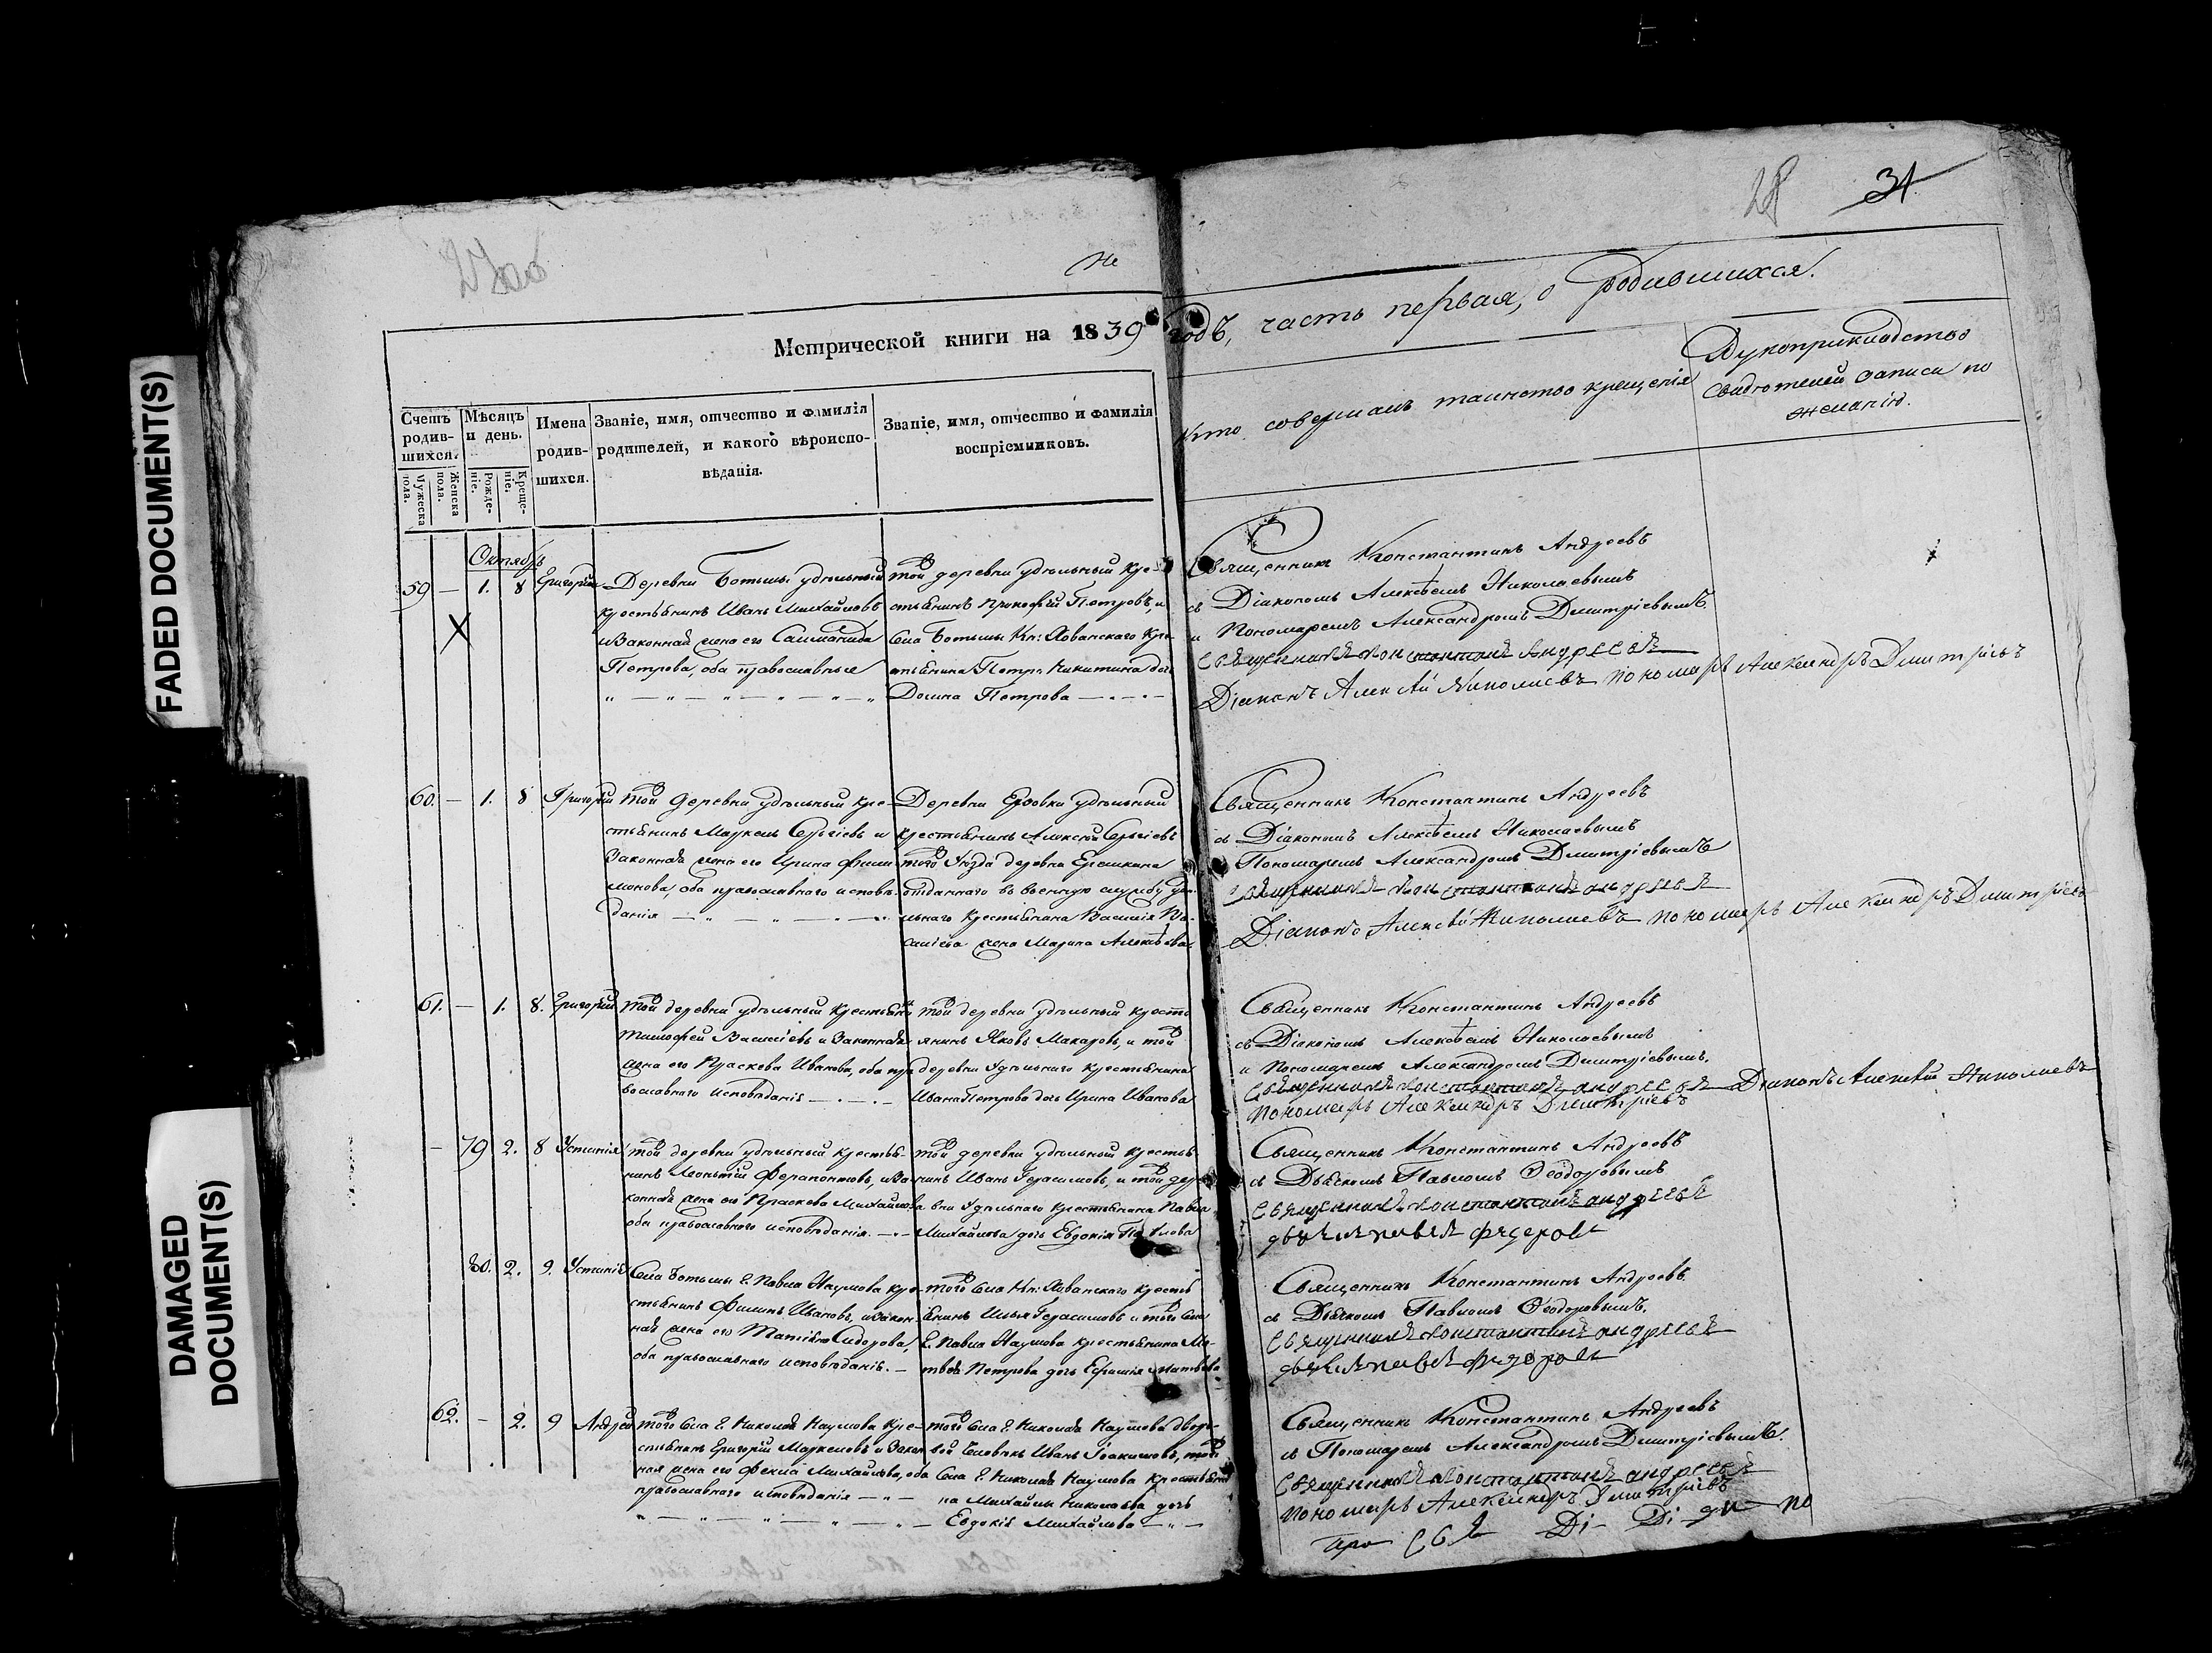 FADED DOCUMENT(S)
DAMAGED DOCUMENT(S)
28 31
Метрической книги на 1839 годъ, часть первая, о родившихся.
Счетъ родив-шихся.
Мужеска пола.
Женска пола.
Мѣсяцъ и день.
Рожде-ніе.
Креще-ніе.
Имена родив-шихся.
Званіе, имя, отчество и фамилія
родителей, и какого вѣроиспо-
вѣданія.
Званіе, имя, отчество и фамилія
воспріемниковъ.
Кто совершалъ таинство крещенія
Рукоприкладство
свидѣтелей записи по
желанію.
Октябрь
59 — 1. 8 Григорій
Деревни Ботьмы удѣльный
крестьянинъ Иванъ Михайловъ
и законная жена его
Петрова, оба православные
той деревни удѣльный кре-
стьянинъ Прокофій Петровъ, и
села Ботьмы Кн: Хованскаго кре-
стьянина Петра Никитина дочь
Домна Петрова
Священникъ Константинъ Андреевъ
съ Діакономъ Алексѣемъ Николаевымъ
и Пономаремъ Александромъ Димитріевымъ.
Священникъ Константинъ Андреевъ
Діаконъ Алексѣй Николаевъ Пономарь Александръ Дмитріевъ
60. — 1. 8 Григорій
той деревни удѣльный кре-
стьянинъ Маркелъ Сергіевъ и
законная жена его Ирина Фили
монова, оба православнаго исповѣ-
данія
Деревни удѣльный
крестьянинъ Алексѣй Сергіевъ
того уѣзда деревни
отданнаго въ военную службу удѣ-
льнаго крестьянина Василія Ва-
силіева жена Марина Алексѣева
Священникъ Константинъ Андреевъ
съ Діакономъ Алексѣемъ Николаевымъ
и Пономаремъ Александромъ Димитріевымъ
Священникъ Константинъ Андреевъ
Діаконъ Алексѣй Николаевъ Пономарь Александръ Дмитріевъ
61. — 1. 8. Григорій
той деревни удѣльный крестьянинъ
Тимофей Василіевъ и законная
жена его Праскева Иванова, оба пра
вославнаго исповѣданія
той деревни удѣльный кресть
янинъ Яковъ Макаровъ, и той
деревни удѣльнаго крестьянина
Ивана Петрова дочь Ирина Иванова
Священникъ Константинъ Андреевъ
съ Діакономъ Алексѣемъ Николаевымъ
и Пономаремъ Александромъ Димитріевымъ.
Священникъ Константинъ Андреевъ Діаконъ Алексѣй Николаевъ
Пономарь Александръ Дмитріевъ
— 79 2. 8 Устинія
той деревни удѣльный крестья-
нинъ Леонтій Ферапонтовъ, и за
конная жена его Праскева Михайлова
оба православнаго исповѣданія.
той деревни удѣльный кресть
нинъ Иванъ Герасимовъ, и той дере
вни удѣльнаго крестьянина Павла
Михайлова дочь Евдокія Павлова
Священникъ Константинъ Андреевъ
съ Дьячкомъ Павломъ Ѳеодоровымъ
Священникъ Константинъ Андреевъ
дьячекъ Павелъ Федоровъ
80. 2. 9. Устинія
Села Ботьмы Г. Павла Наумова кре-
стьянинъ Филипъ Ивановъ, и закон
ная жена его Татіяна Сидорова,
оба православнаго исповѣданія.
того села Кн: Хованскаго кресть
янинъ Илья Герасимовъ и того села
Г. Павла Наумова крестьянина Ма-
твея Петрова дочь Матвѣева
Священникъ Константинъ Андреевъ
съ Дьячкомъ Павломъ Ѳеодоровымъ.
Священникъ Константинъ Андреевъ
дьячекъ Павелъ Федоровъ
62. — 2. 9 Андрей
того села Г. Николая Наумова кре-
стьянинъ Григорій Маркеловъ и закон
ная жена его Фекла Михайлова, оба
православнаго исповѣданія
того села Г. Николая Наумова дворо-
вой человѣкъ Иванъ Іоакимовъ, того
села Г. Николая Наумова крестьяни
на Михайлы Николаева дочь
Евдокія Михайлова
Священникъ Константинъ Андреевъ
съ Пономаремъ Александромъ Димитріевымъ.
Священникъ Константинъ Андреевъ
Пономарь Александръ Дмитріевъ